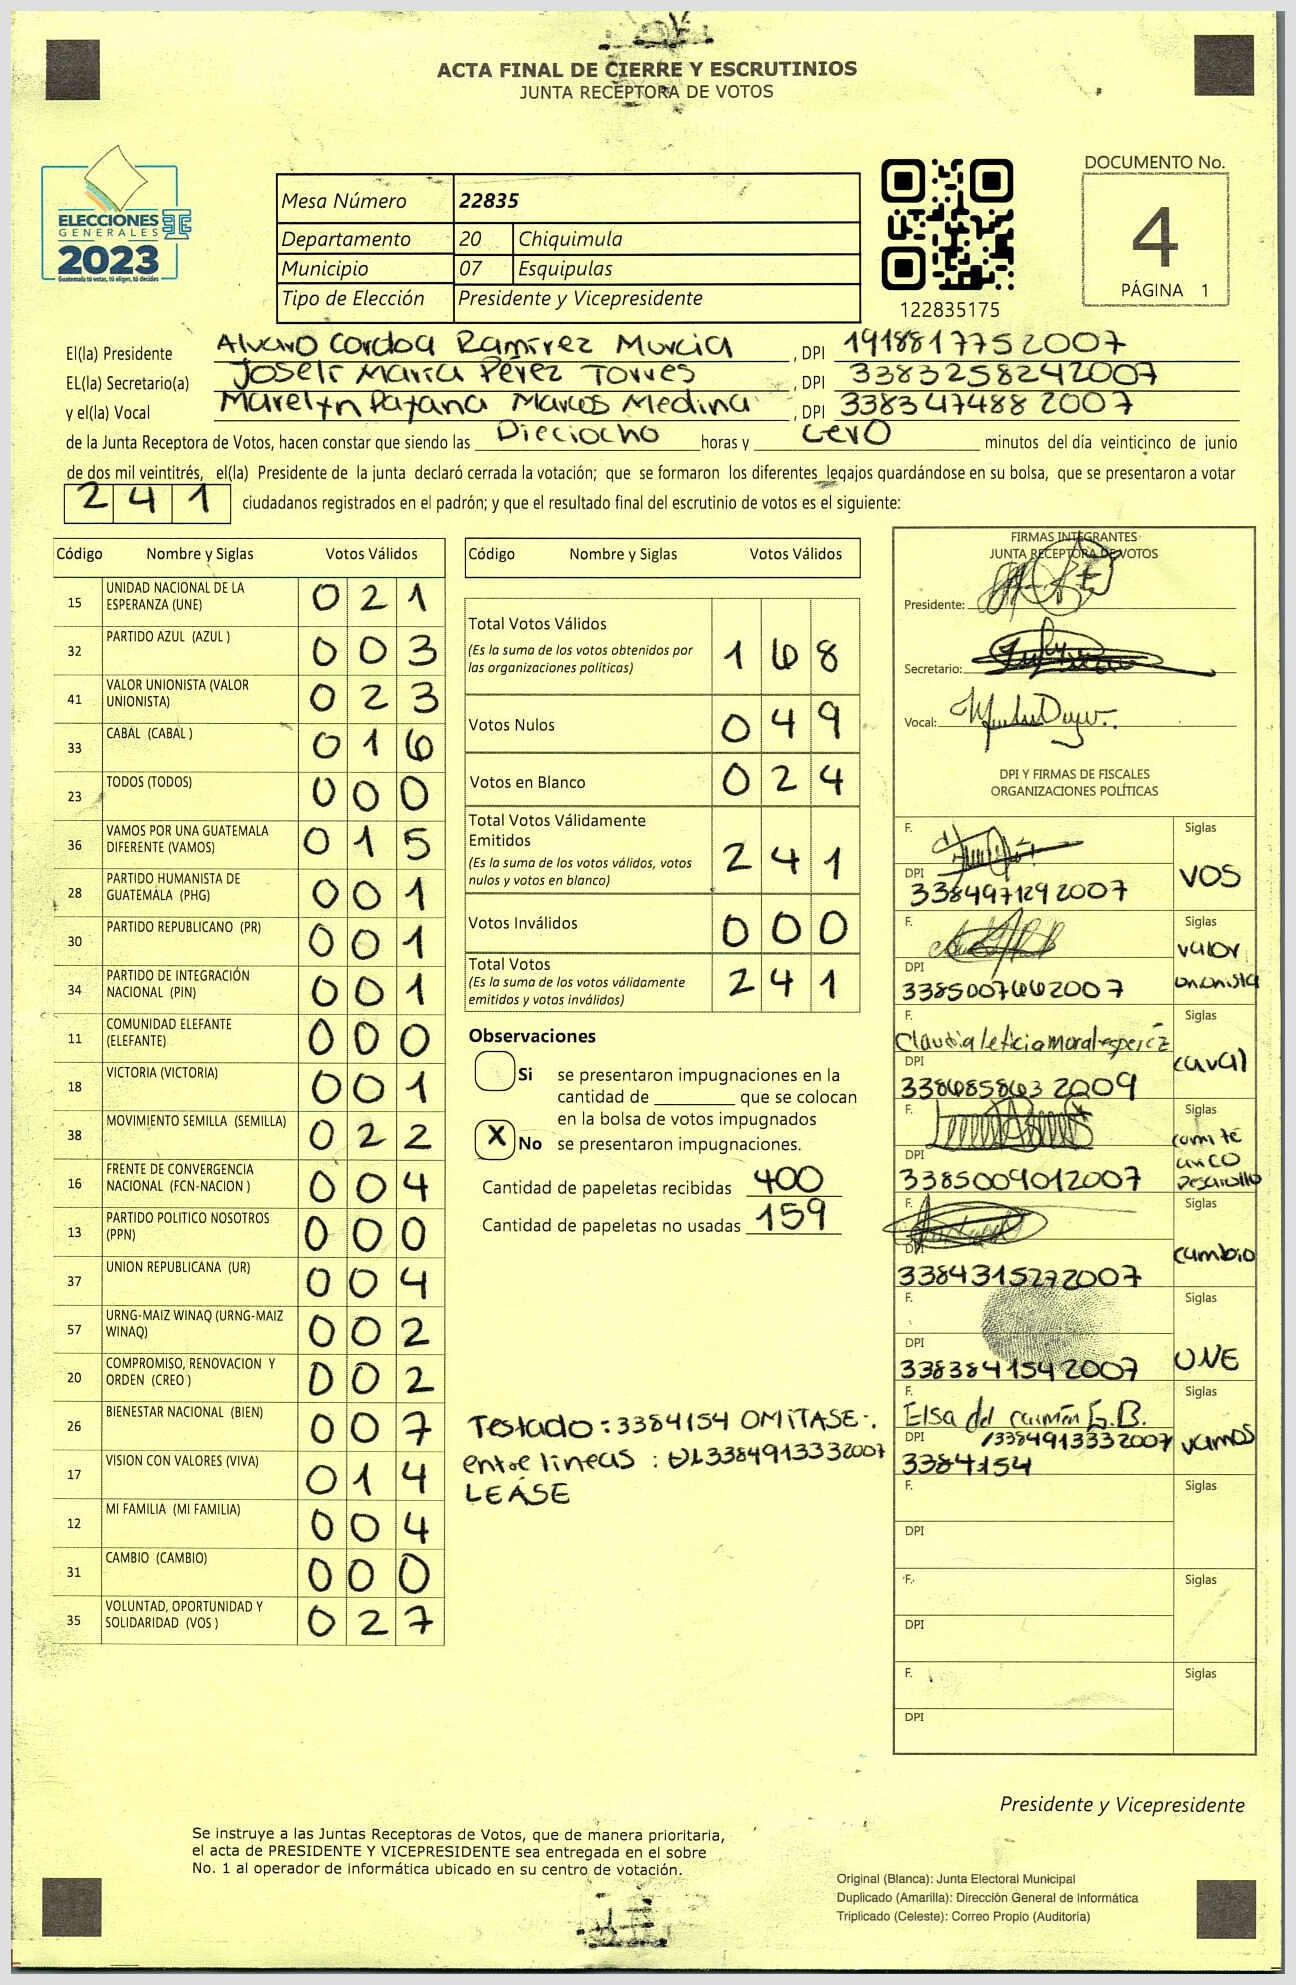 ACTA FINAL DE CIERRE Y ESCRUTINIOS
JUNTA RECEPTORA DE VOTOS
ELECCIONES
GENERALES
2023
Guatemala tú votas, tú eliges, tú decides
Mesa Número 22835
Departamento 20 Chiquimula
Municipio 07 Esquipulas
Tipo de Elección Presidente y Vicepresidente
122835175
DOCUMENTO No.
4
PÁGINA 1
El(la) Presidente Alvaro Cordoa Ramírez Murcia, DPI 1918817752007
EL(la) Secretario(a) Joseli María Pérez Torres, DPI 3383258242007
y el(la) Vocal Marelyn Dayana Marcos Medina, DPI 3383474882007
de la Junta Receptora de Votos, hacen constar que siendo las Dieciocho horas y cero minutos del día veinticinco de junio
de dos mil veintitrés, el(la) Presidente de la junta declaró cerrada la votación; que se formaron los diferentes legajos guardándose en su bolsa, que se presentaron a votar
241 ciudadanos registrados en el padrón; y que el resultado final del escrutinio de votos es el siguiente:
Código Nombre y Siglas Votos Válidos
15 UNIDAD NACIONAL DE LA ESPERANZA (UNE) 021
32 PARTIDO AZUL (AZUL ) 003
41 VALOR UNIONISTA (VALOR UNIONISTA) 023
33 CABAL (CABAL ) 016
23 TODOS (TODOS) 000
36 VAMOS POR UNA GUATEMALA DIFERENTE (VAMOS) 015
28 PARTIDO HUMANISTA DE GUATEMALA (PHG) 001
30 PARTIDO REPUBLICANO (PR) 001
34 PARTIDO DE INTEGRACIÓN NACIONAL (PIN) 001
11 COMUNIDAD ELEFANTE (ELEFANTE) 000
18 VICTORIA (VICTORIA) 001
38 MOVIMIENTO SEMILLA (SEMILLA) 022
16 FRENTE DE CONVERGENCIA NACIONAL (FCN-NACION ) 004
13 PARTIDO POLITICO NOSOTROS (PPN) 000
37 UNION REPUBLICANA (UR) 004
57 URNG-MAIZ WINAQ (URNG-MAIZ WINAQ) 002
20 COMPROMISO, RENOVACION Y ORDEN (CREO ) 002
26 BIENESTAR NACIONAL (BIEN) 007
17 VISION CON VALORES (VIVA) 014
12 MI FAMILIA (MI FAMILIA) 004
31 CAMBIO (CAMBIO) 000
35 VOLUNTAD, OPORTUNIDAD Y SOLIDARIDAD (VOS ) 027
Código Nombre y Siglas Votos Válidos
Total Votos Válidos 168
(Es la suma de los votos obtenidos por
las organizaciones políticas)
Votos Nulos 049
Votos en Blanco 024
Total Votos Válidamente
Emitidos 241
(Es la suma de los votos válidos, votos
nulos y votos en blanco)
Votos Inválidos 000
Total Votos 241
(Es la suma de los votos válidamente
emitidos y votos inválidos)
Observaciones
Si se presentaron impugnaciones en la
cantidad de ________ que se colocan
en la bolsa de votos impugnados
X No se presentaron impugnaciones.
Cantidad de papeletas recibidas 400
Cantidad de papeletas no usadas 159
Testado: 3384154 OMITASE.
entre lineas : 3384913332007
LEÁSE
FIRMAS INTEGRANTES
JUNTA RECEPTORA DE VOTOS
Presidente:
Secretario:
Vocal:
DPI Y FIRMAS DE FISCALES
ORGANIZACIONES POLÍTICAS
F. Siglas
DPI 3384971292007 VOS
F. Siglas
DPI 3385007662007 valor unionista
F. Claudia leticia morales peréz Siglas
DPI 3386858632009 caval
F. Siglas
DPI 3385009012007 comite unico Desarollo
F. Siglas
DPI 3384315272007 cambio
F. Siglas
DPI 3383841542007 UNE
F. Elsa del carmen G.B. Siglas
DPI /3384913332007 vamos
3384154
F. Siglas
DPI
F. Siglas
DPI
F. Siglas
DPI
Presidente y Vicepresidente
Se instruye a las Juntas Receptoras de Votos, que de manera prioritaria,
el acta de PRESIDENTE Y VICEPRESIDENTE sea entregada en el sobre
No. 1 al operador de informática ubicado en su centro de votación.
Original (Blanca): Junta Electoral Municipal
Duplicado (Amarilla): Dirección General de Informática
Triplicado (Celeste): Correo Propio (Auditoría)